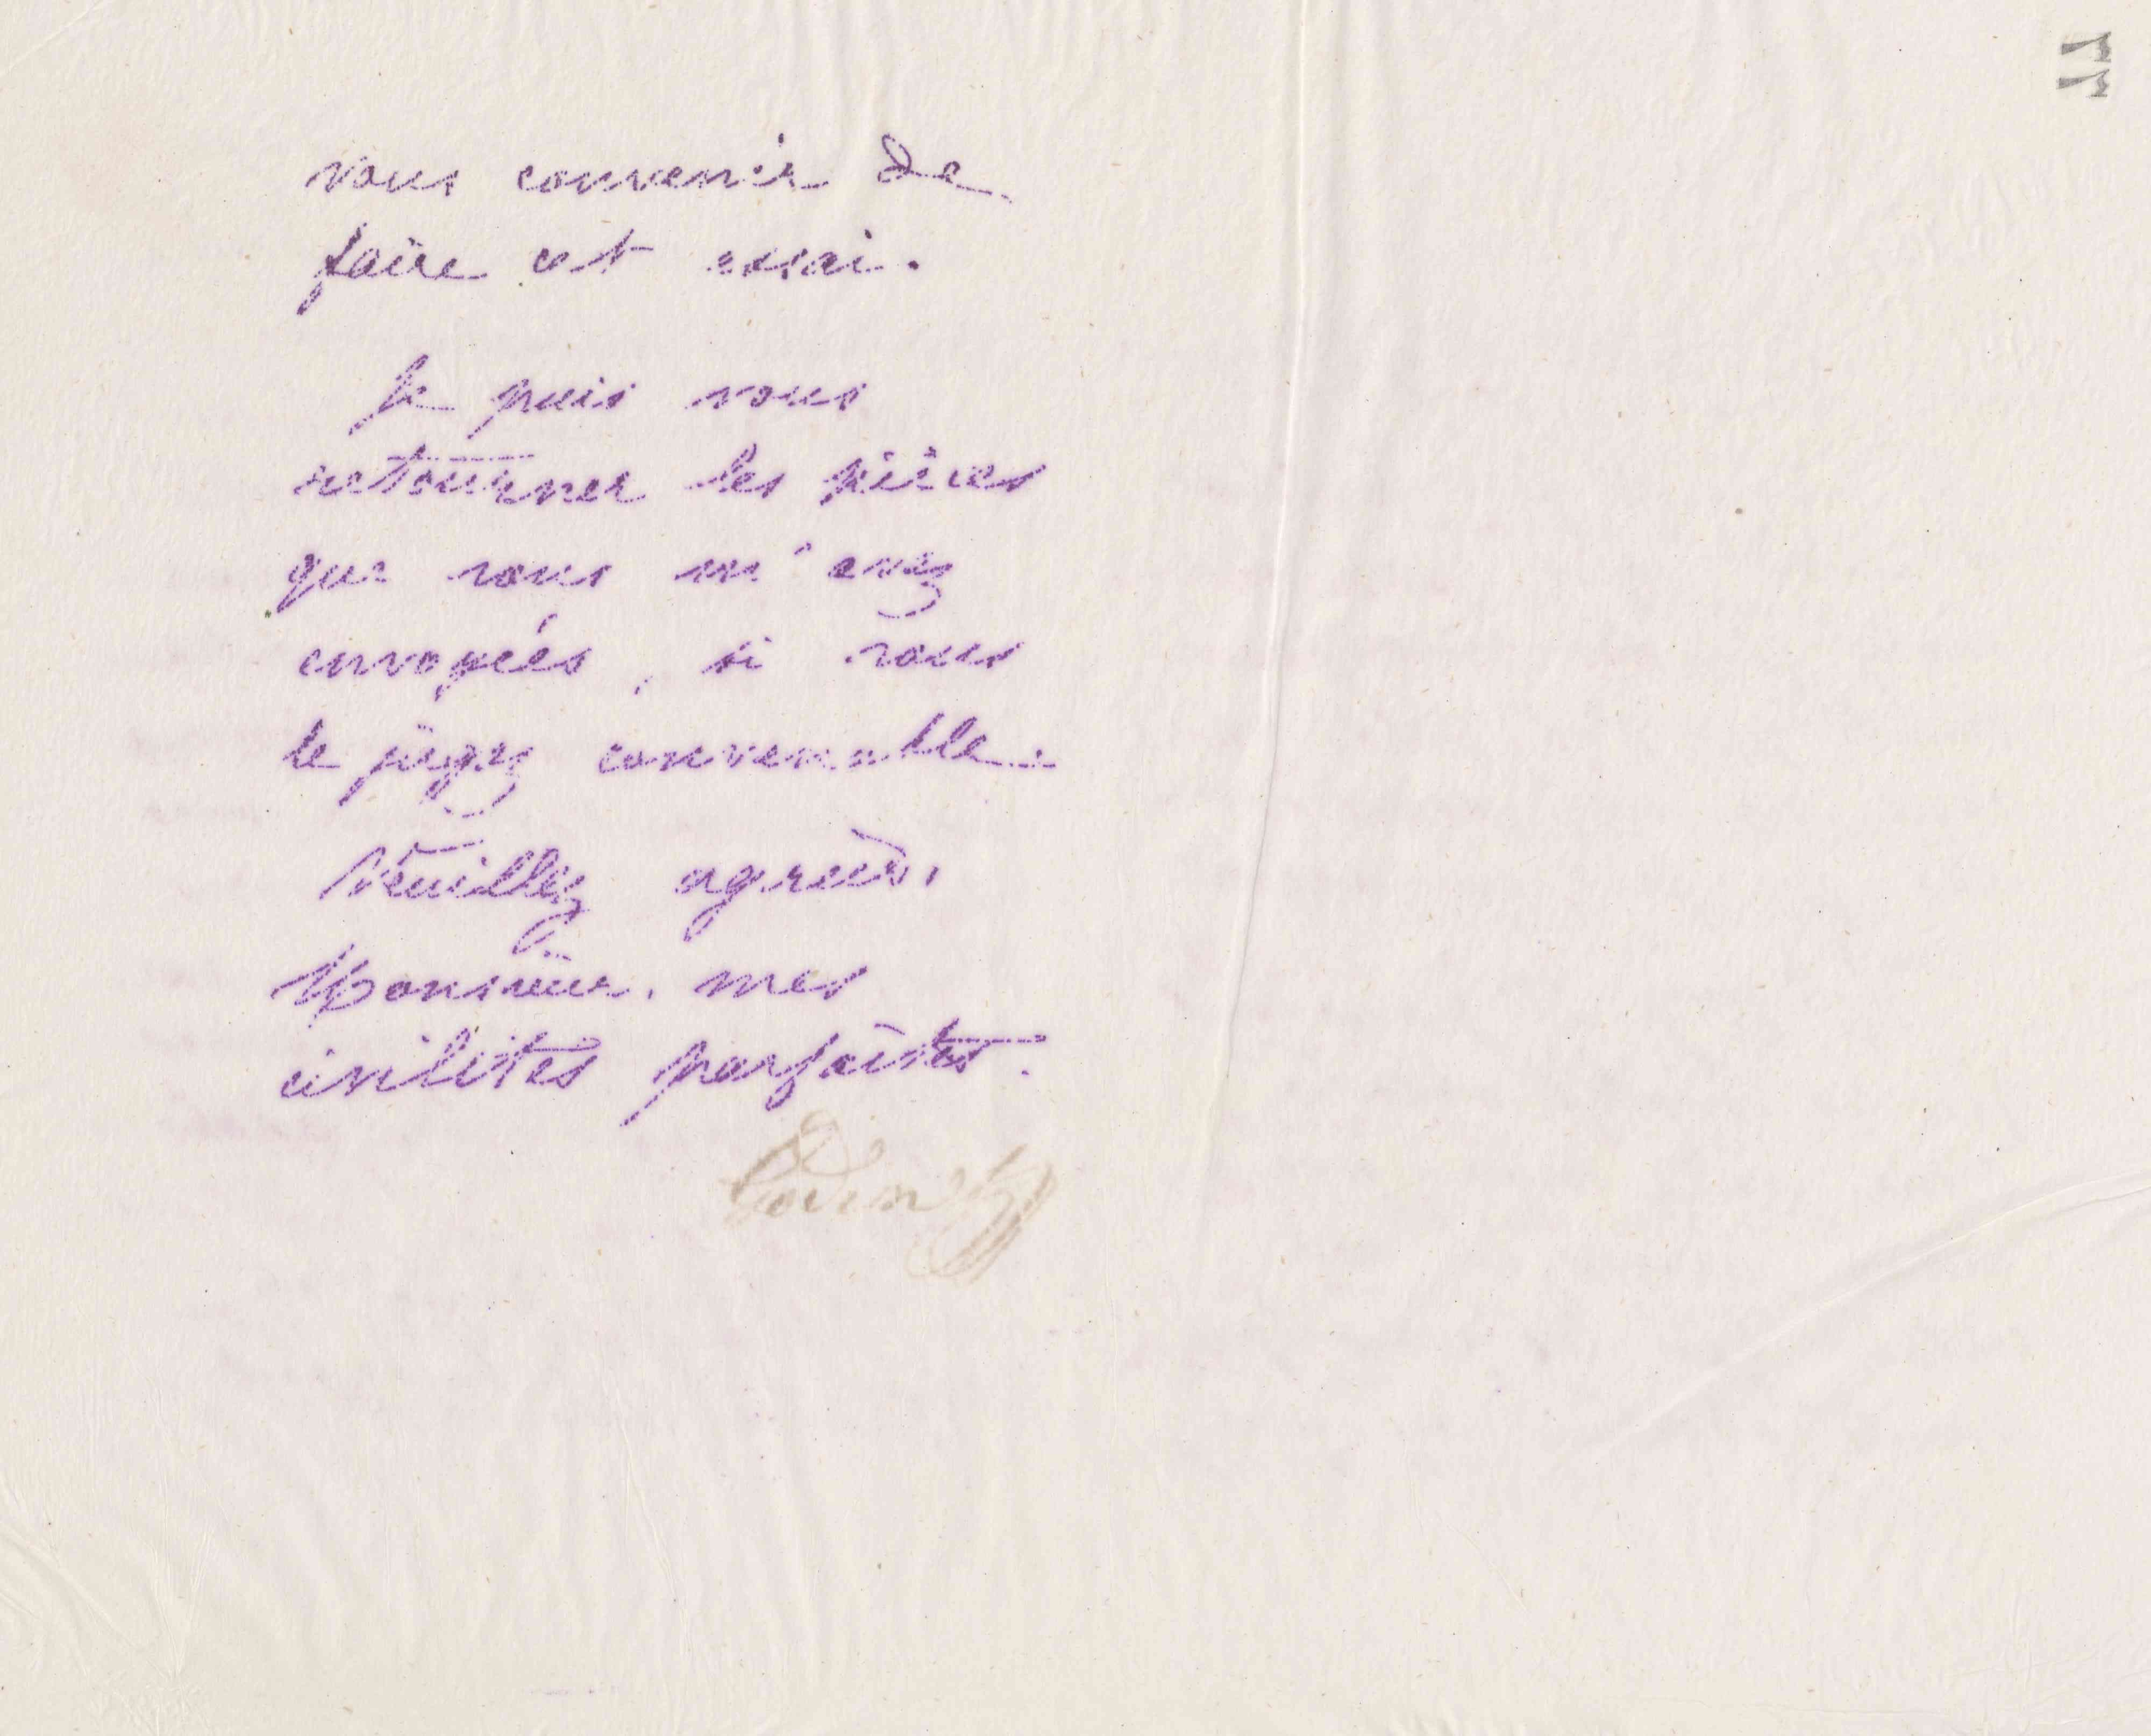 vous convenir de
faire cet essai.
Je puis vous
retourner les pièces
que vous m'avez
envoyées, si vous
le jugez convenable.
Veuillez agréer,
Monsieur, mes
civilités parfaites.
Godin
77